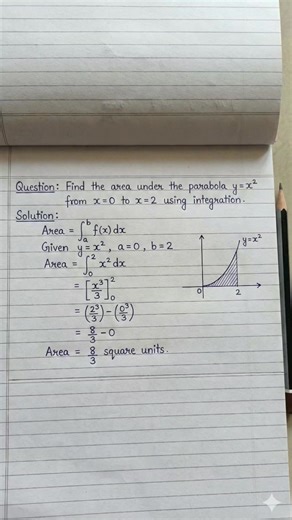 Question: Find the area under the parabola y=x²
from x=0 to x=2 using integration.
Solution:
Area = ∫ₐᵇ f(x) dx
Given y=x², a=0, b=2
Area = ∫₀² x² dx
= [x³/3]₀²
= (2³/3) - (0³/3)
= 8/3 - 0
Area = 8/3 square units.
y=x²
0 2